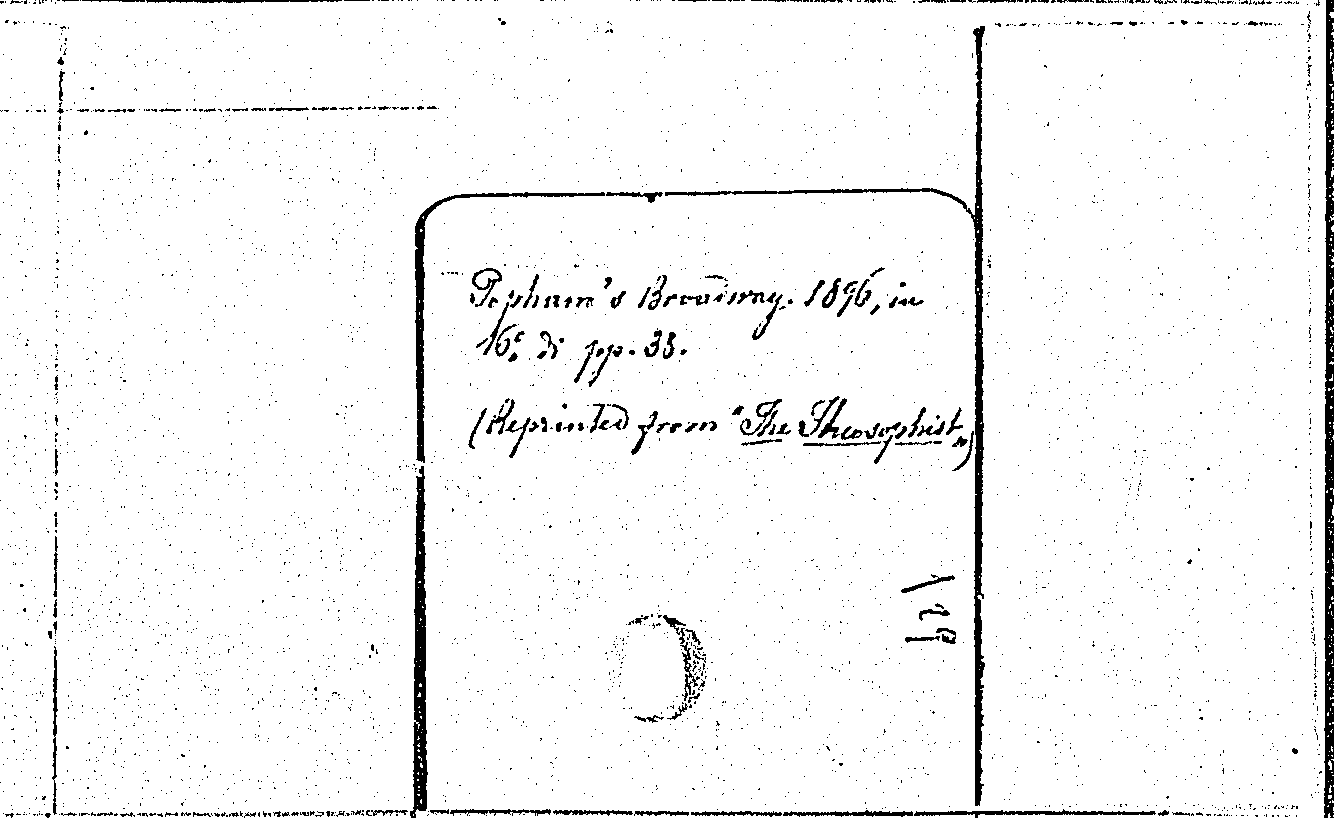 Popham's Broadway. 1896, in
16º di pp. 33.
(Reprinted from "The Theosophist")
129